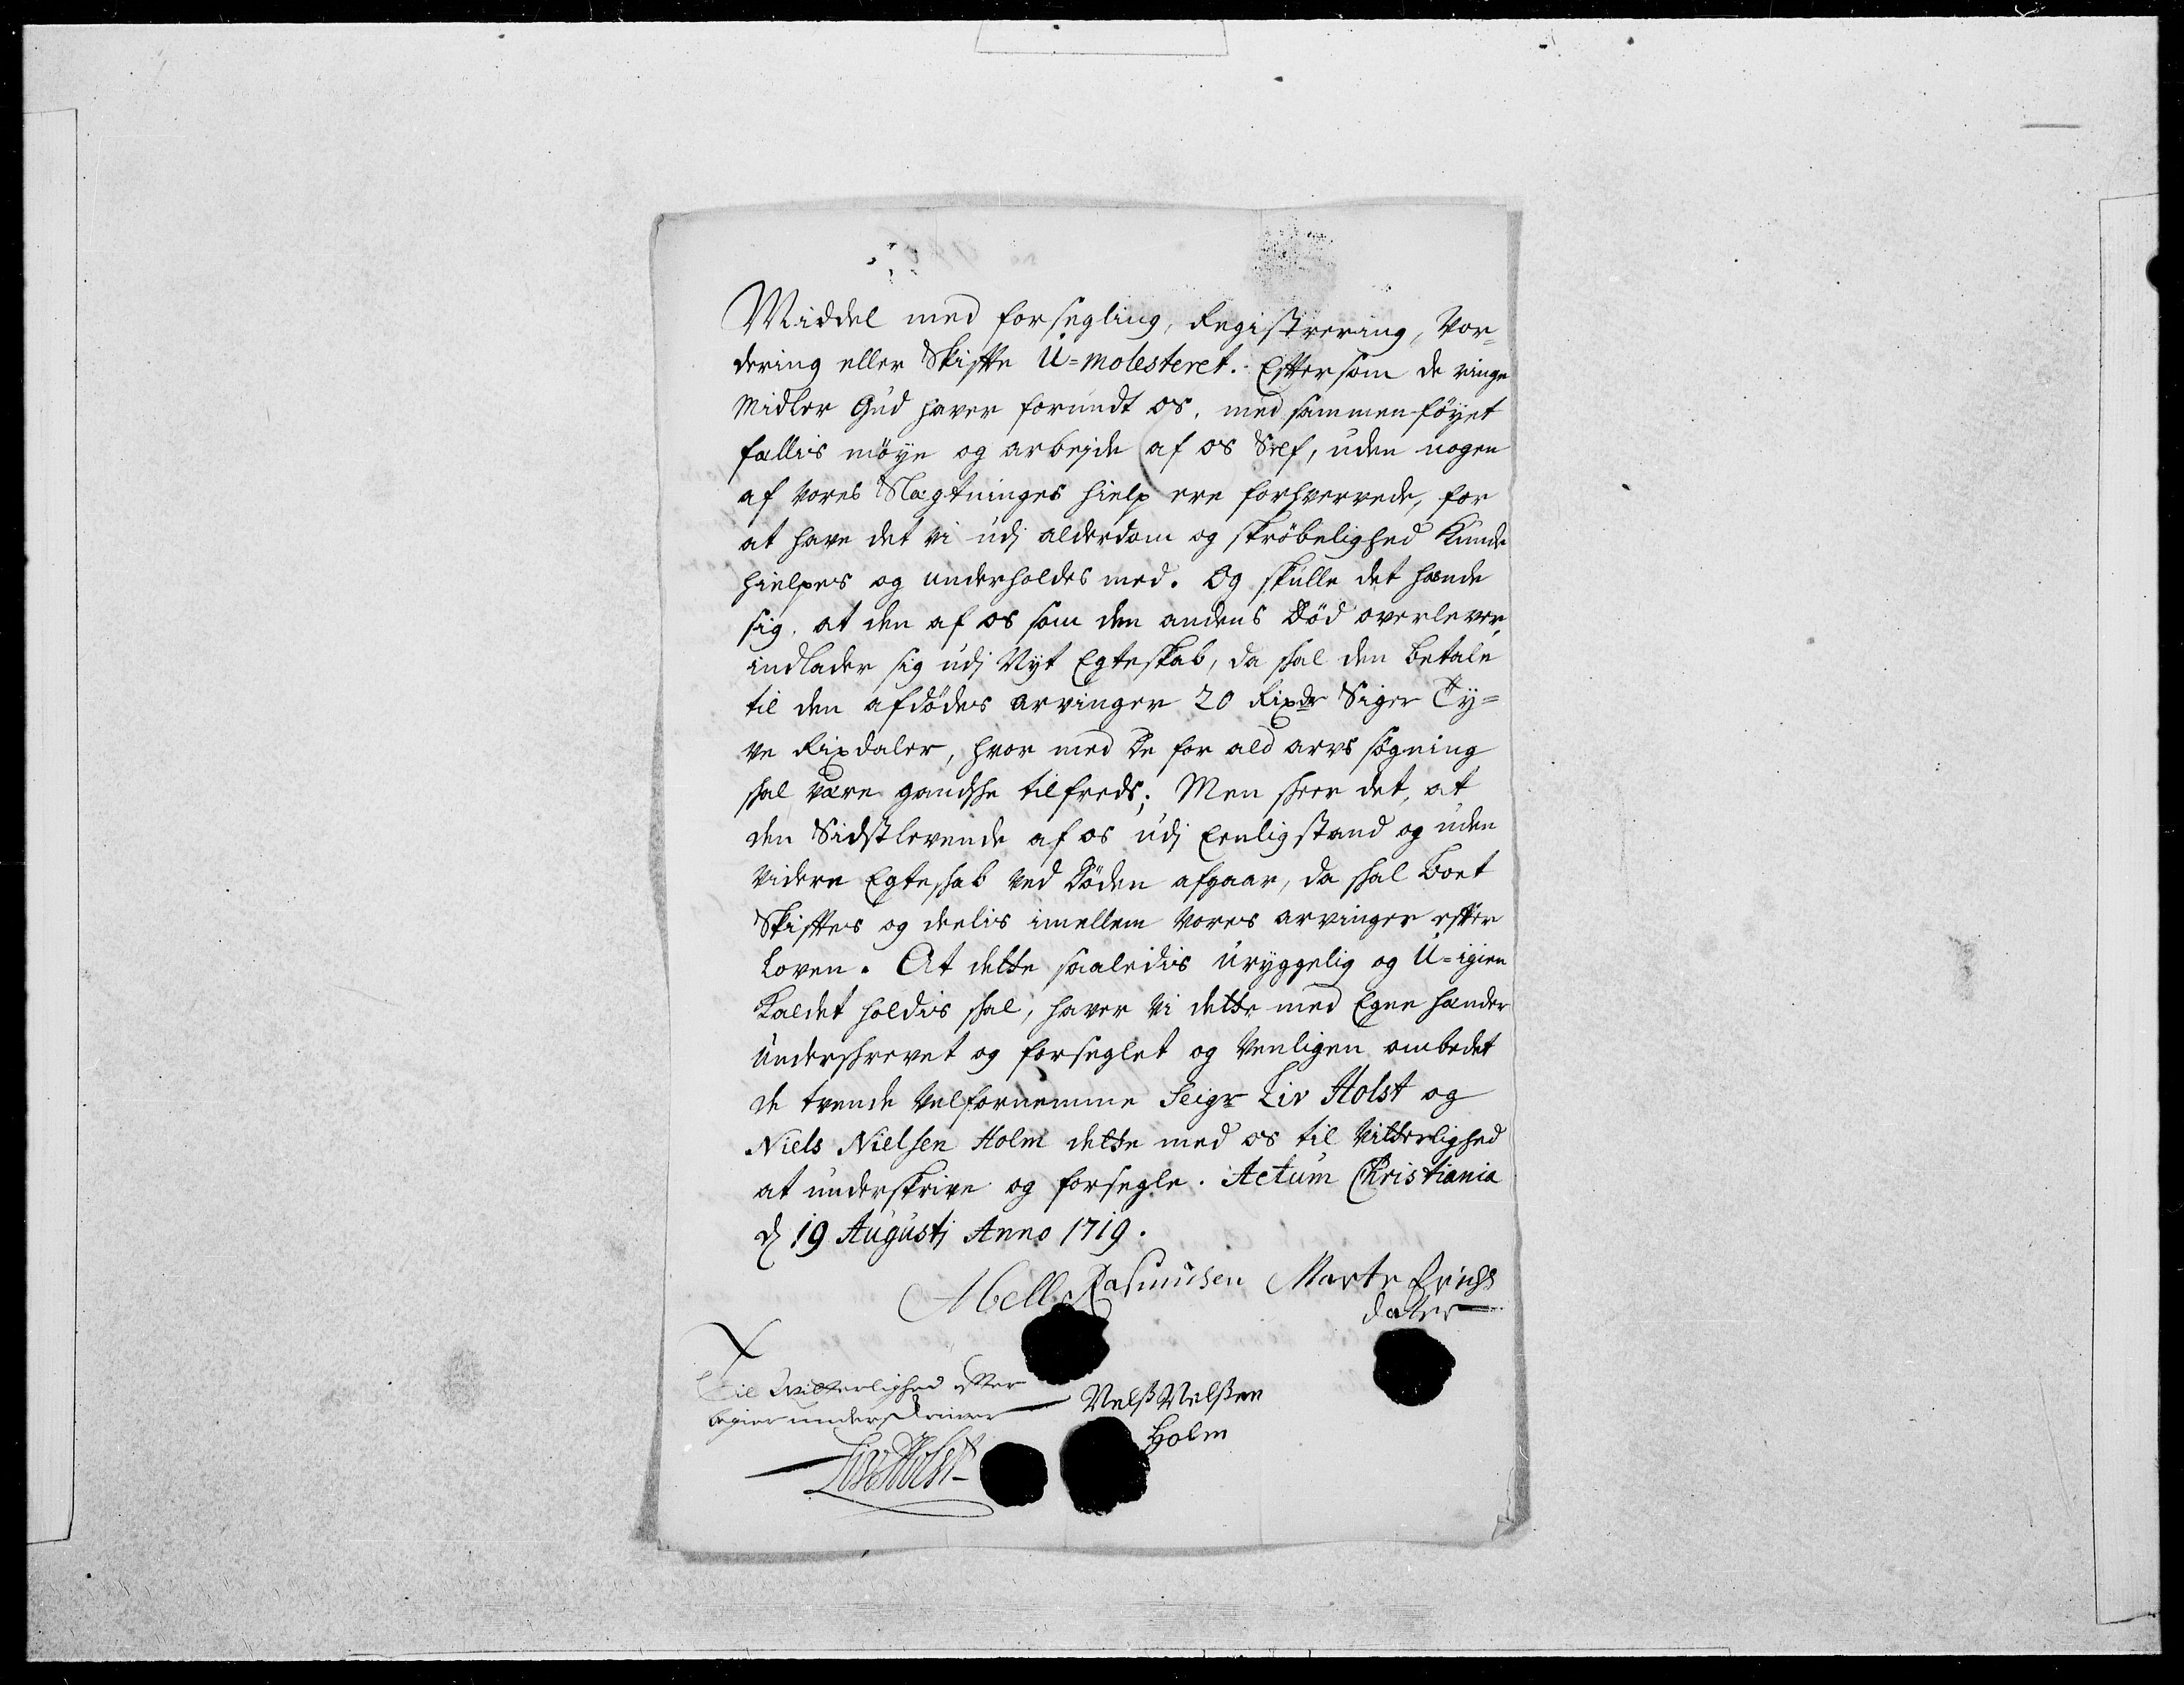 Middel med forsegling, Registrering, Vor-
dering eller Skiffte U=molesteret. Efftersom de ringe
Midler Gud haver forundt os, med sammenføyet
fællis møye og arbejde af os Self, uden nogen
af vores Slægtninges hielp ere forhvervede, for
at have det vi udj alderdom og skrøbelighed Kunde
hielpes og underholdes med. Og skulle det hænde
sig, at den af os som den andens Død overlever,
indlader sig udj Nyt Egteskab, da skal den betale
til den afdødes arvinger 20 Rixdr Siger Ty=
ve Rixdaler, hvor med De for ald arvs søgning
skal være gandske tilfreds; Men skeer det, at
den Sidstlevende af os udj Eenlig stand og uden
videre Egteskab ved Døden afgaar, da skal Boet
Skifftes og deelis imellem vores arvinger effter
Loven. At dette saaledis uryggelig og U=igien
Kaldet holdis skal, haver vi dette med Egne hænder
Underskrevet og forseglet og Venligen ombedet
de tvende velfornemme Seigr Liv Holst og
Niels Nielsen Holm dette med os til Vitterlighed
at underskrive og forsegle. Actum Christiania
d 19 Augustj Anno 1719.
Rasmusen Marte Erichs
dater
Til Witterlighed effter
begier underskriver
Nelß Nelßen
Holm
Liv Holst